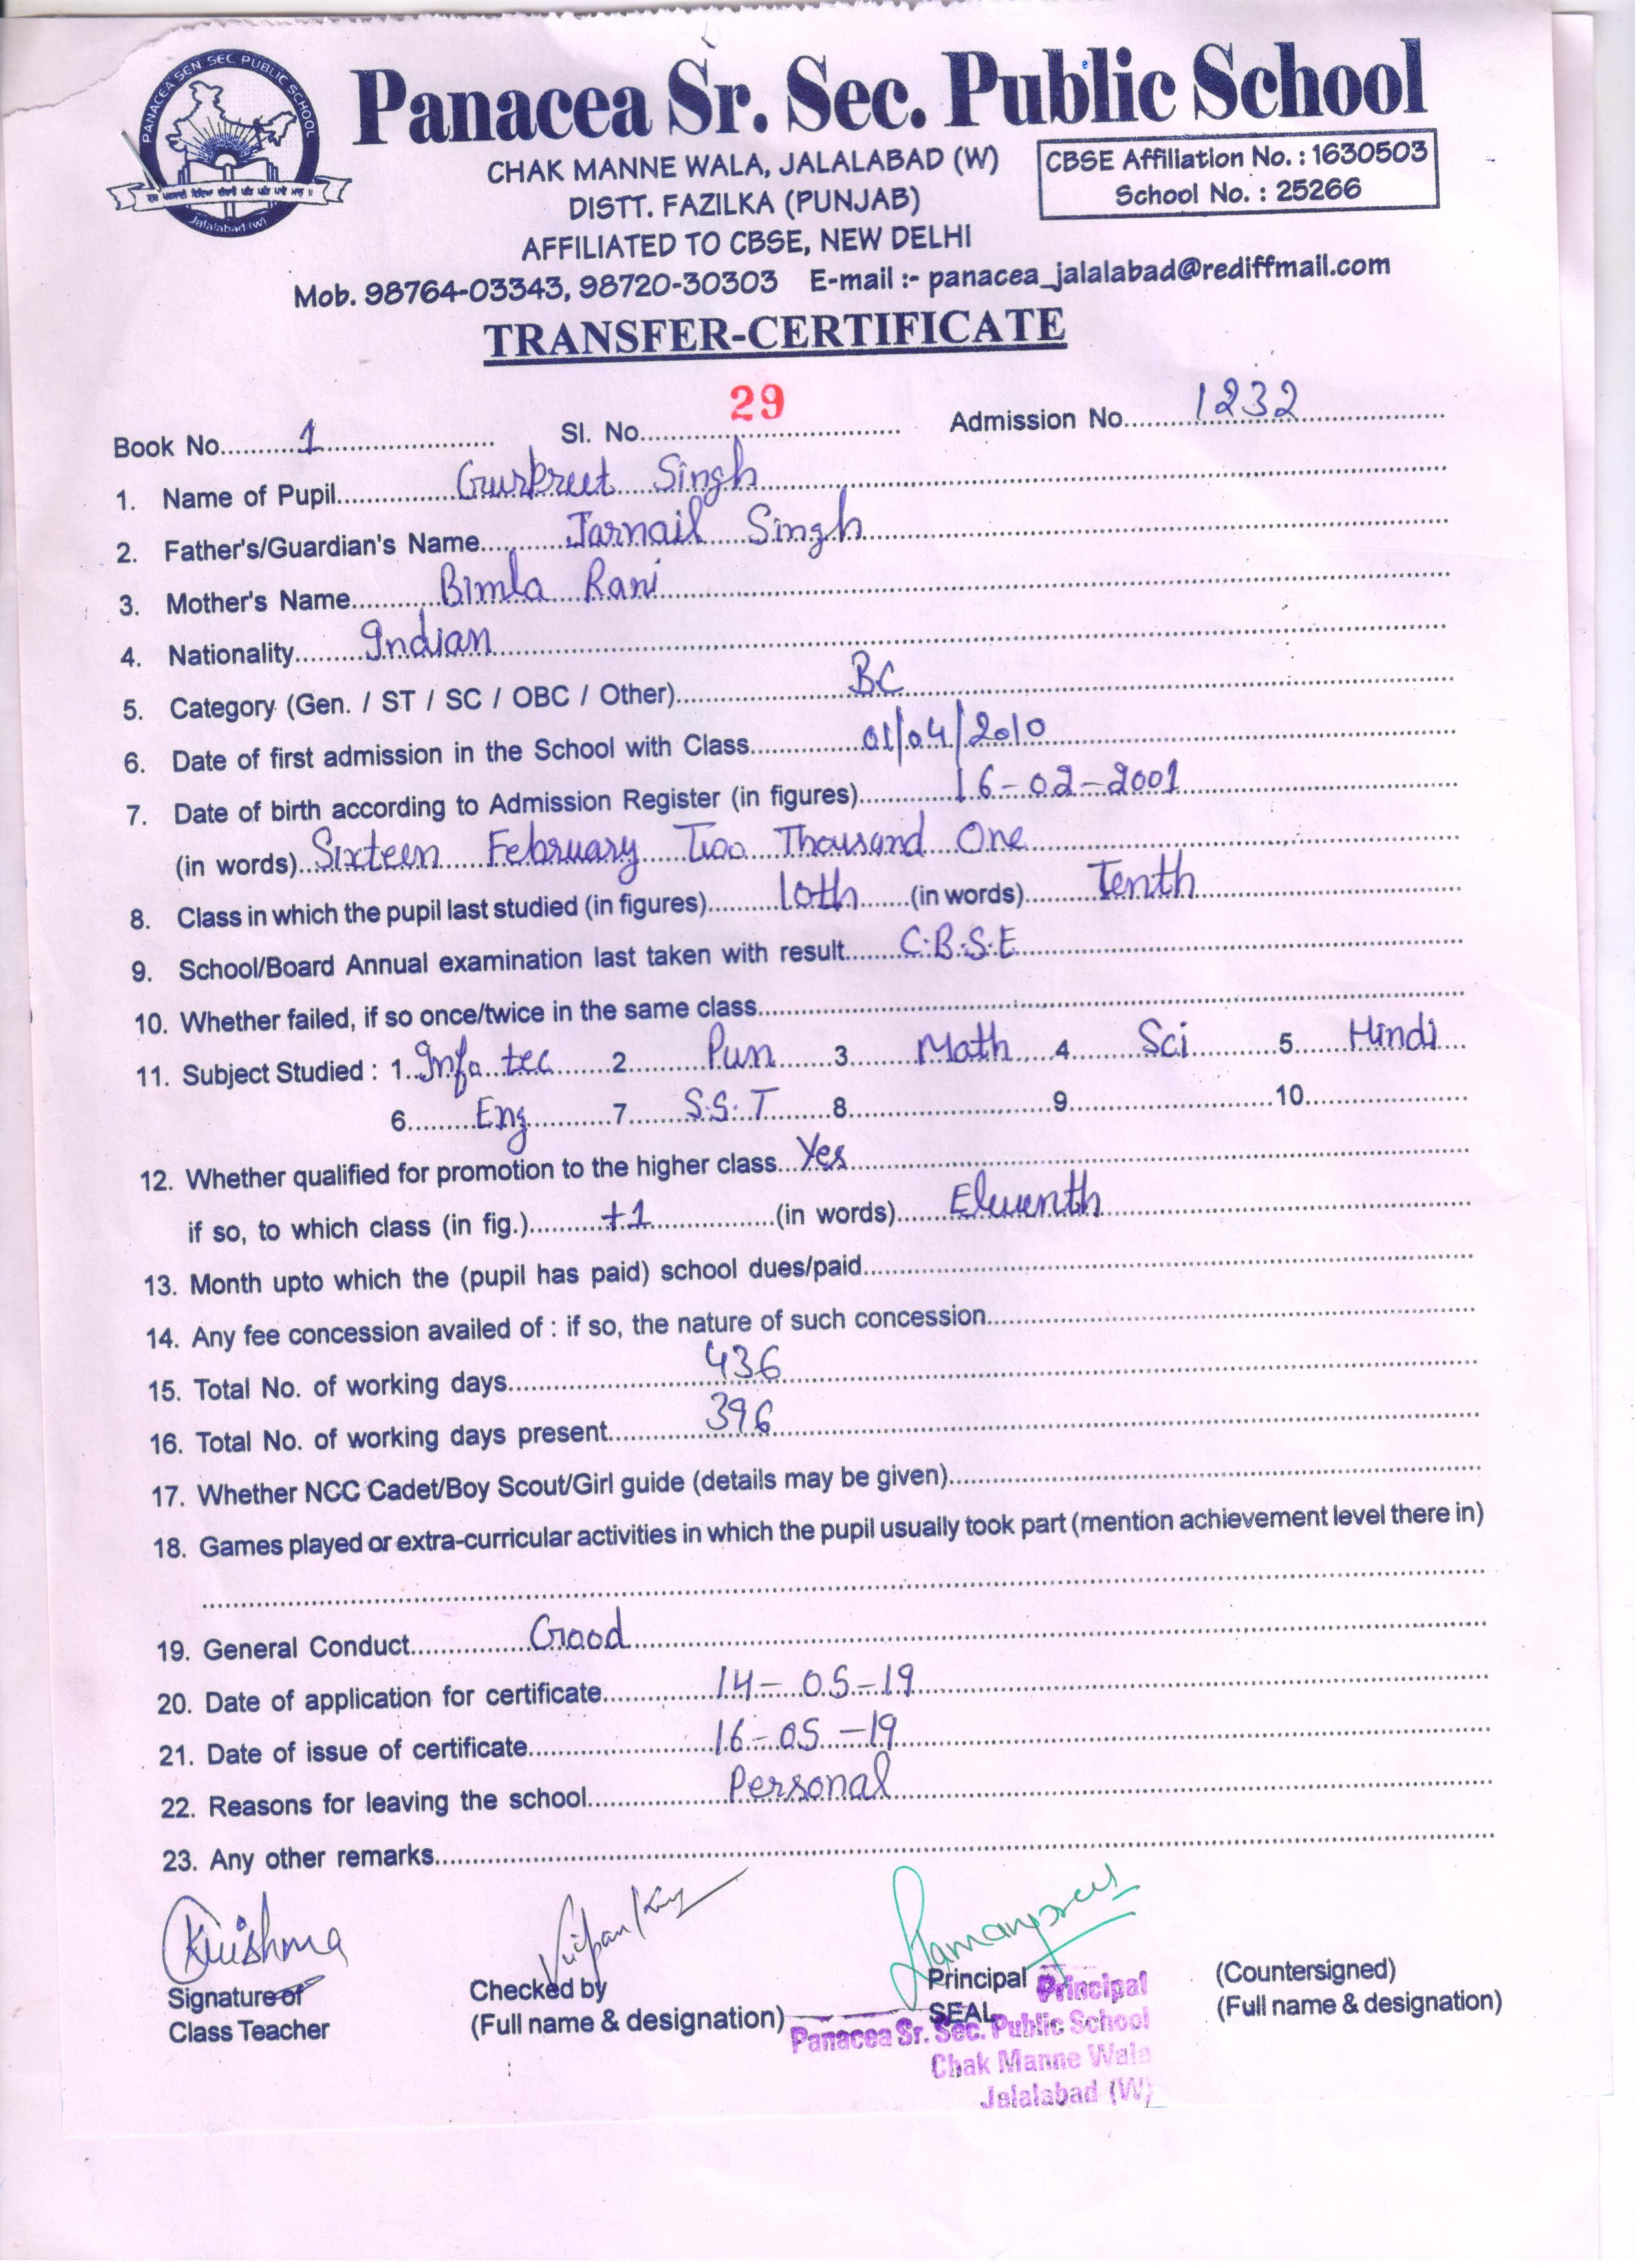 PANACEA SEN SEC PUBLIC SCHOOL
Jalalabad (W)
Panacea Sr. Sec. Public School
CHAK MANNE WALA, JALALABAD (W)
DISTT. FAZILKA (PUNJAB)
AFFILIATED TO CBSE, NEW DELHI
CBSE Affiliation No. : 1630503
School No. : 25266
Mob. 98764-03343, 98720-30303 E-mail :- panacea_jalalabad@rediffmail.com
TRANSFER-CERTIFICATE
Book No. 1 Sl. No. 29 Admission No. 1232
1. Name of Pupil Gurpreet Singh
2. Father's/Guardian's Name Jarnail Singh
3. Mother's Name Bimla Rani
4. Nationality Indian
5. Category (Gen. / ST / SC / OBC / Other) BC
6. Date of first admission in the School with Class 01/04/2010
7. Date of birth according to Admission Register (in figures) 16-02-2001
(in words) Sixteen February Two Thousand One
8. Class in which the pupil last studied (in figures) 10th (in words) Tenth
9. School/Board Annual examination last taken with result C.B.S.E
10. Whether failed, if so once/twice in the same class
11. Subject Studied : 1. Info tec 2. Pun 3. Math 4. Sci 5. Hindi
6. Eng 7. S.S.T 8. 9. 10.
12. Whether qualified for promotion to the higher class Yes
if so, to which class (in fig.) +1 (in words) Eleventh
13. Month upto which the (pupil has paid) school dues/paid
14. Any fee concession availed of : if so, the nature of such concession
15. Total No. of working days 436
16. Total No. of working days present 396
17. Whether NCC Cadet/Boy Scout/Girl guide (details may be given)
18. Games played or extra-curricular activities in which the pupil usually took part (mention achievement level there in)
19. General Conduct Good
20. Date of application for certificate 14-05-19
21. Date of issue of certificate 16-05-19
22. Reasons for leaving the school Personal
23. Any other remarks
Signature of
Class Teacher
Checked by
(Full name & designation)
Principal
SEAL
Principal
Panacea Sr. Sec. Public School
Chak Manne Wala
Jalalabad (W)
(Countersigned)
(Full name & designation)